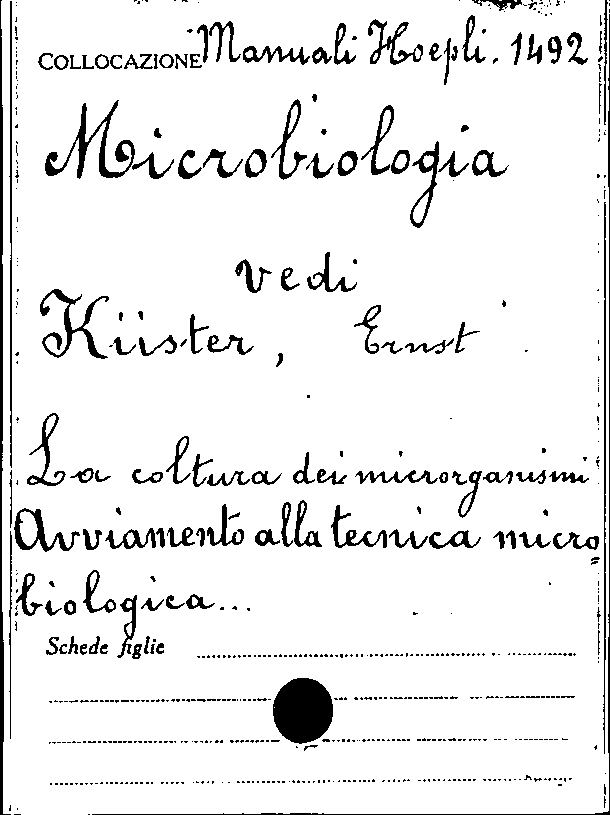 COLLOCAZIONE Manuali Hoepli. 1492
Microbiologia
vedi
Küster, Ernst
La coltura dei microrganismi
Avviamento alla tecnica micro=
biologica...
Schede figlie